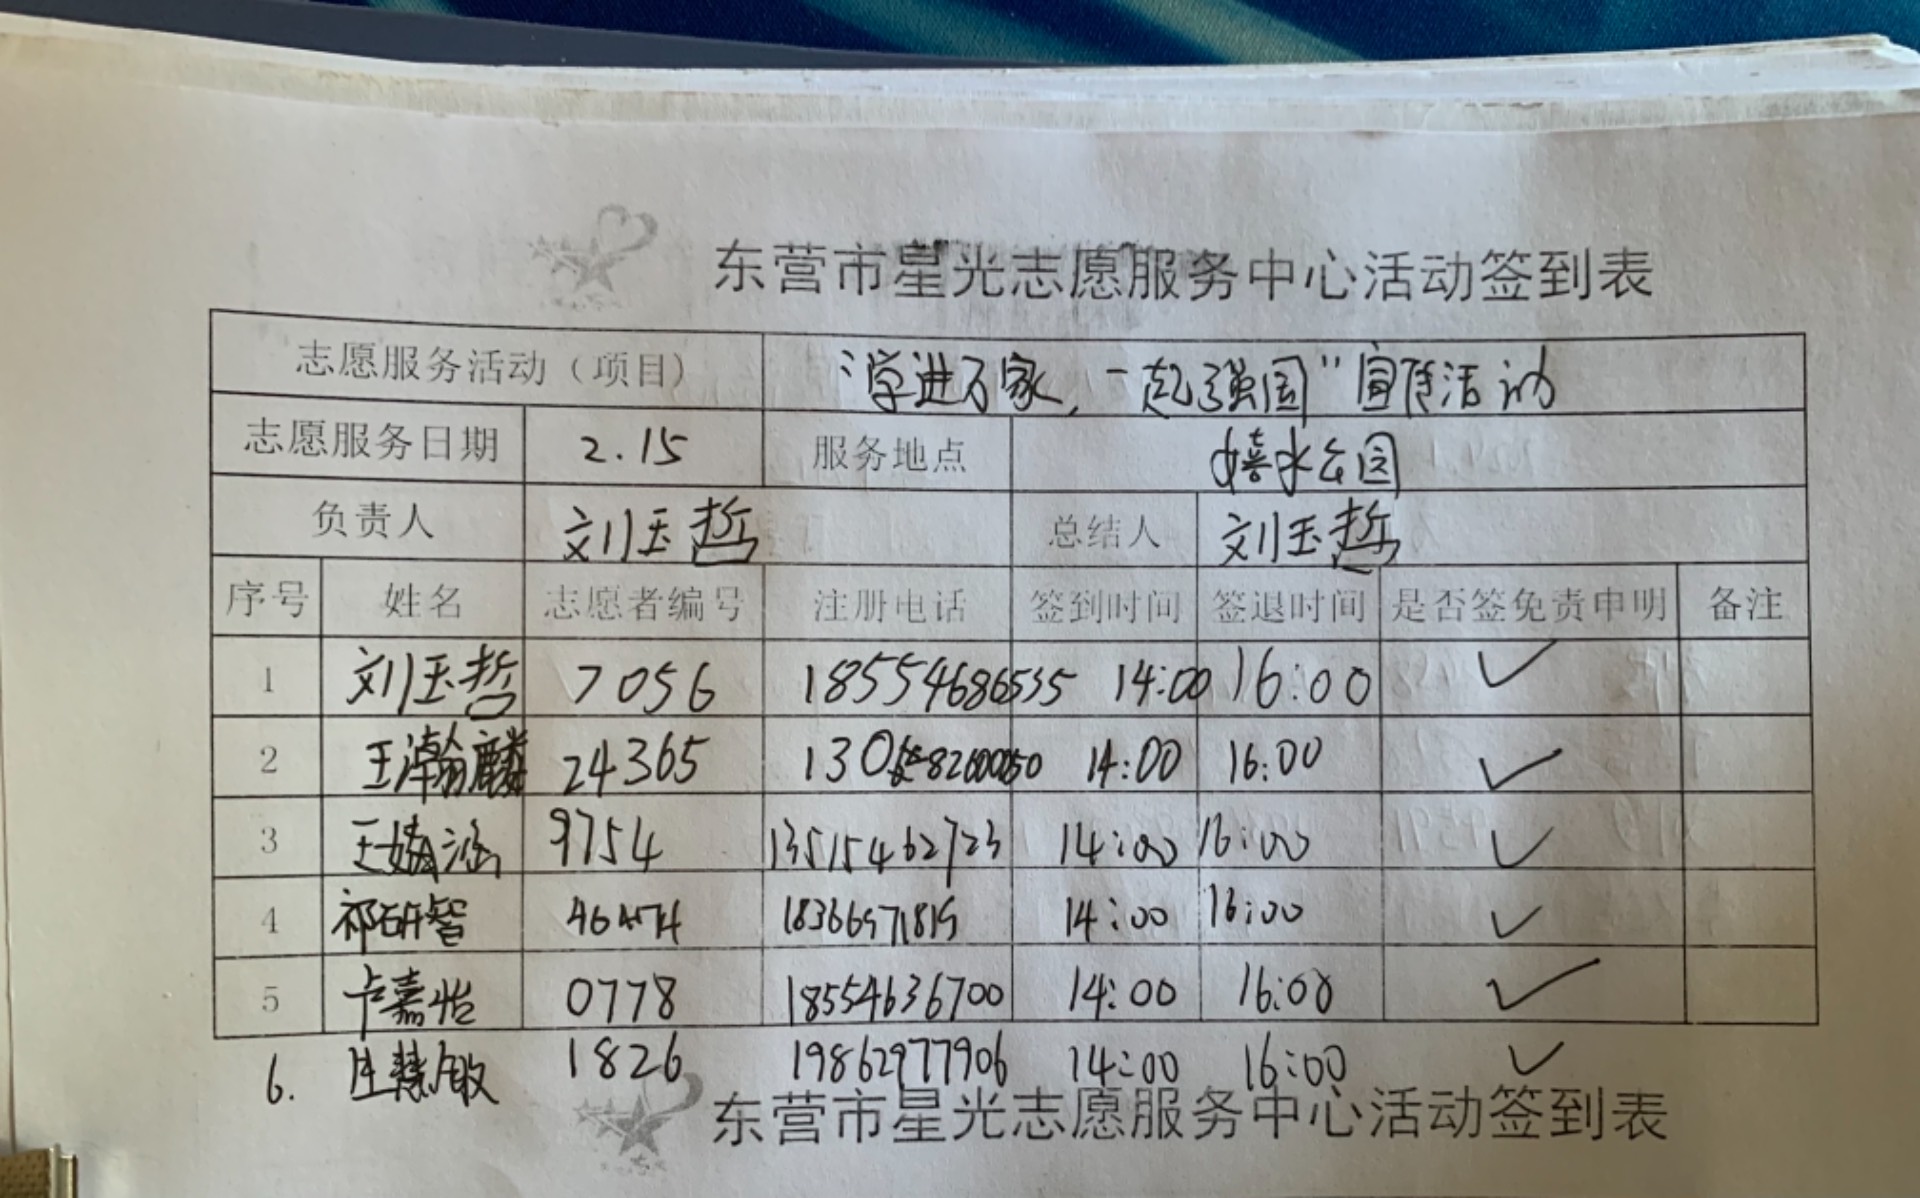 东营市星光志愿服务中心活动签到表
志愿服务活动（项目） “学进万家，一起强国”宣传活动
志愿服务日期 2.15 服务地点 嬉水公园
负责人 刘玉哲 总结人 刘玉哲
序号 姓名 志愿者编号 注册电话 签到时间 签退时间 是否签免责申明 备注
1 刘玉哲 7056 18554686535 14:00 16:00 ✓
2 王瀚麟 24365 14:00 16:00 ✓
3 王婧涵 9754 13515462723 14:00 16:00 ✓
4 祁研智 14:00 16:00 ✓
5 卢嘉怡 0778 18554636700 14:00 16:00 ✓
6. 1826 19862977906 14:00 16:00 ✓
东营市星光志愿服务中心活动签到表